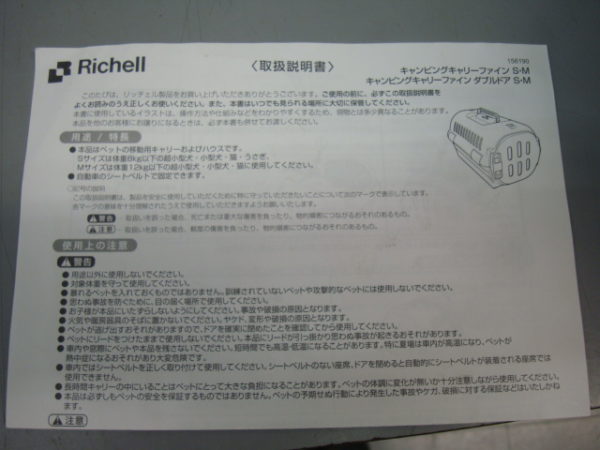 Richell
〈取扱説明書〉
156190
キャンピングキャリーファイン S・M
キャンピングキャリーファイン ダブルドア S・M
このたびは、リッチェル製品をお買い上げいただきありがとうございます。ご使用の前に、必ずこの取扱説明書を
よくお読みのうえ正しくお使いください。また、本書はいつでも見られる場所に大切に保管してください。
本書に使用しているイラストは、操作方法や仕組みなどをわかりやすくするため、現物とは多少異なることがあります。
本品を他のお客様にお譲りになるときは、必ず本書も併せてお渡しください。
用途 / 特長
●本品はペットの移動用キャリーおよびハウスです。
Sサイズは体重8kg以下の超小型犬・小型犬・猫・うさぎ、
Mサイズは体重12kg以下の超小型犬・小型犬・猫に使用してください。
●自動車のシートベルトで固定できます。
○記号の説明
この取扱説明書は、製品を安全に使用していただくために特に守っていただきたいことについて次のマークで表示しています。
各マークの意味を十分理解されたうえで使用していただきますようお願いいたします。
警告 … 取扱いを誤った場合、死亡または重大な傷害を負ったり、物的損害につながるおそれのあるもの。
注意 … 取扱いを誤った場合、軽度の傷害を負ったり、物的損害につながるおそれのあるもの。
使用上の注意
警告
●用途以外に使用しないでください。
●対象体重を守って使用してください。
●暴れるペットを入れておくものではありません。訓練されていないペットや攻撃的なペットには使用しないでください。
●思わぬ事故を防ぐために、目の届く場所で使用してください。
●お子様が本品にいたずらしないようにしてください。事故や破損の原因となります。
●火気や暖房器具のそばに置かないでください。ヤケド、変形や破損の原因となります。
●ペットが逃げ出すおそれがありますので、ドアを確実に閉めたことを確認してから使用してください。
●ペットにリードをつけたままで使用しないでください。本品にリードが引っ掛かり思わぬ事故が起きるおそれがあります。
●車内や窓際にペットや本品を残さないでください。短時間でも高温・低温になることがあります。特に夏場は車内が高温になり、ペットが
熱中症になるおそれがあり大変危険です。
●車内ではシートベルトを正しく取り付けて使用してください。シートベルトのない座席、ドアを閉めると自動的にシートベルトが装着される座席では
使用できません。
●長時間キャリーの中にいることはペットにとって大きな負担になることがあります。ペットの体調に変化が無いか十分注意しながら使用してください。
●本品は必ずしもペットの安全を保証するものではありません。ペットの予期せぬ行動により発生した事故やケガ、破損に対する保証などはいたしかね
ます。
注意